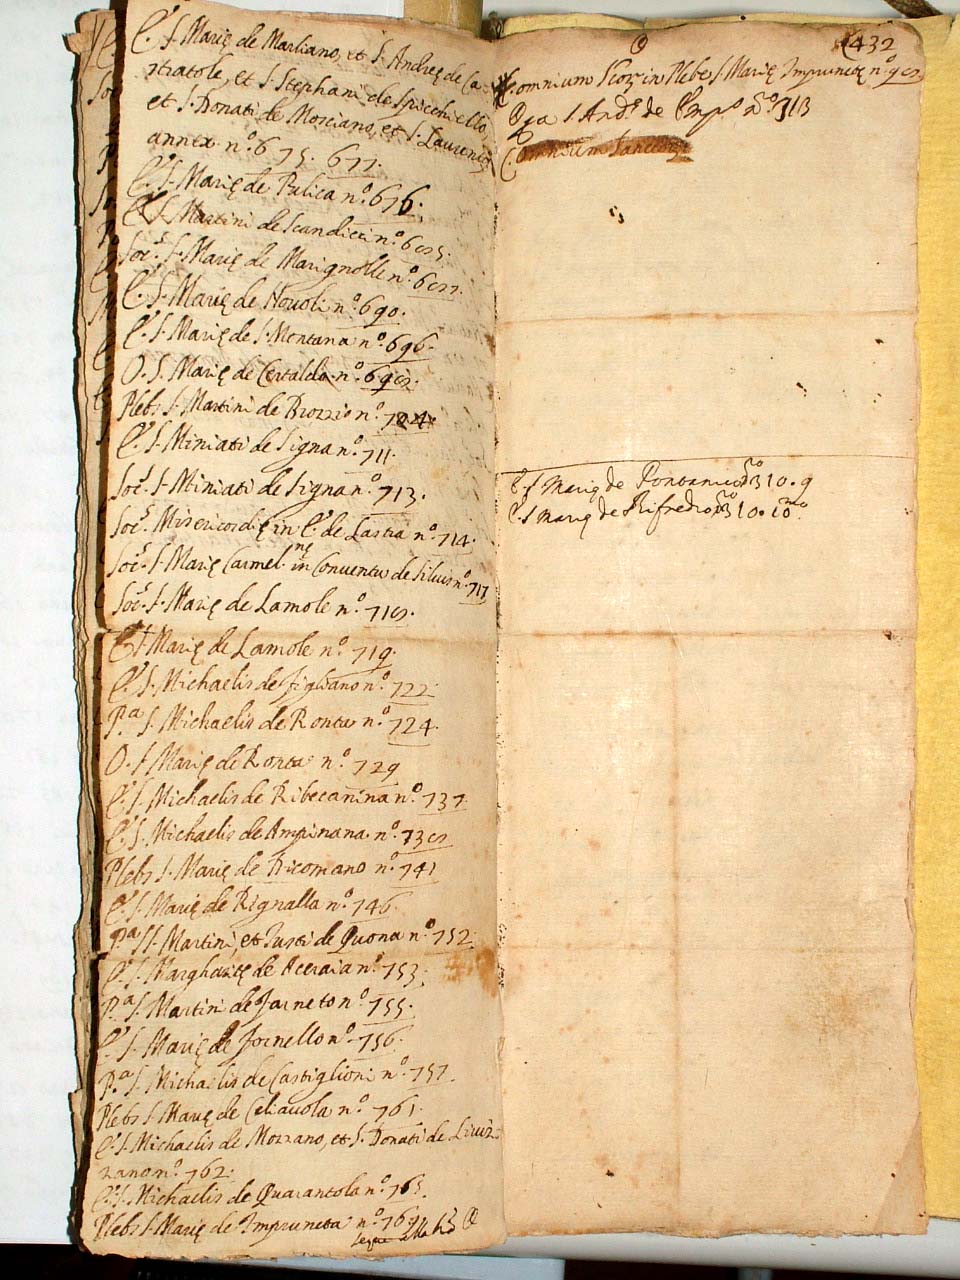 E.ª S. Marię de Marliano, et S. Andreę de Ca-
stratole, et S. Stephani de Spicchiello
et S. Donati de Morciano, et S. Laurenzi
annex. n.º 675. 677.
E.ª S. Marię de Pulica n.º 676.
E.ª S. Martini de Scandicci n.º 685.
Soc.ˢ S. Marię de Marignolle n.º 687.
E.ª S. Marię de Nouoli n.º 690.
E.ª S. Marię de S. Montana n.º 696.
O. S. Marię de Certaldo n.º 698.
Plebs S. Martini de Brozzi n.º 704.
E.ª S. Miniati de Signa n.º 711.
Soc.ˢ S. Miniati de Signa n.º 713.
Soc.ˢ Misericordię in E.ª de Lastra n.º 714.
Soc.ˢ S. Marię Carmel.ⁿᵉ in Conuentu de Siluis n.º 717
Soc.ˢ S. Marię de Lamole n.º 718.
E.ª S. Marię de Lamole n.º 719.
E.ª S. Michaelis de Figliano n.º 722.
P.ª S. Michaelis de Ronta n.º 724.
O. S. Marię de Ronta n.º 729
E.ª S. Michaelis de Ribecanina n.º 737.
E.ª S. Michaelis de Ampinana n.º 738
Plebs S. Marię de Dicomano n.º 741
E.ª S. Marię de Rignalla n.º 746.
P.ª SS. Martini, et Justi de Quona n.º 752.
E.ª S. Margharitę de Aceraia n.º 753.
P.ª S. Martini de Farneto n.º 755.
E.ª S. Marię de Fornello n.º 756.
P.ª S. Michaelis de Castiglioni n.º 757.
Plebs S. Marię de Celiauola n.º 761.
E.ª S. Michaelis de Mozzano, et S. Donati de Liuiz-
zano n.º 762.
E.ª S. Michaelis de Quarantola n.º 765.
Plebs S. Marię de Impruneta n.º 767
segue alla @
@
432
Omnium Scor. in Plebe S. Marię Imprunetę n.º 98
S. And.ª de Emp.º n.º 313
Omnium Sanctor.
E.ª S. Marię de Pontanico n.º 310. 9
E.ª S. Marię de Rifredo n.º 310. 10